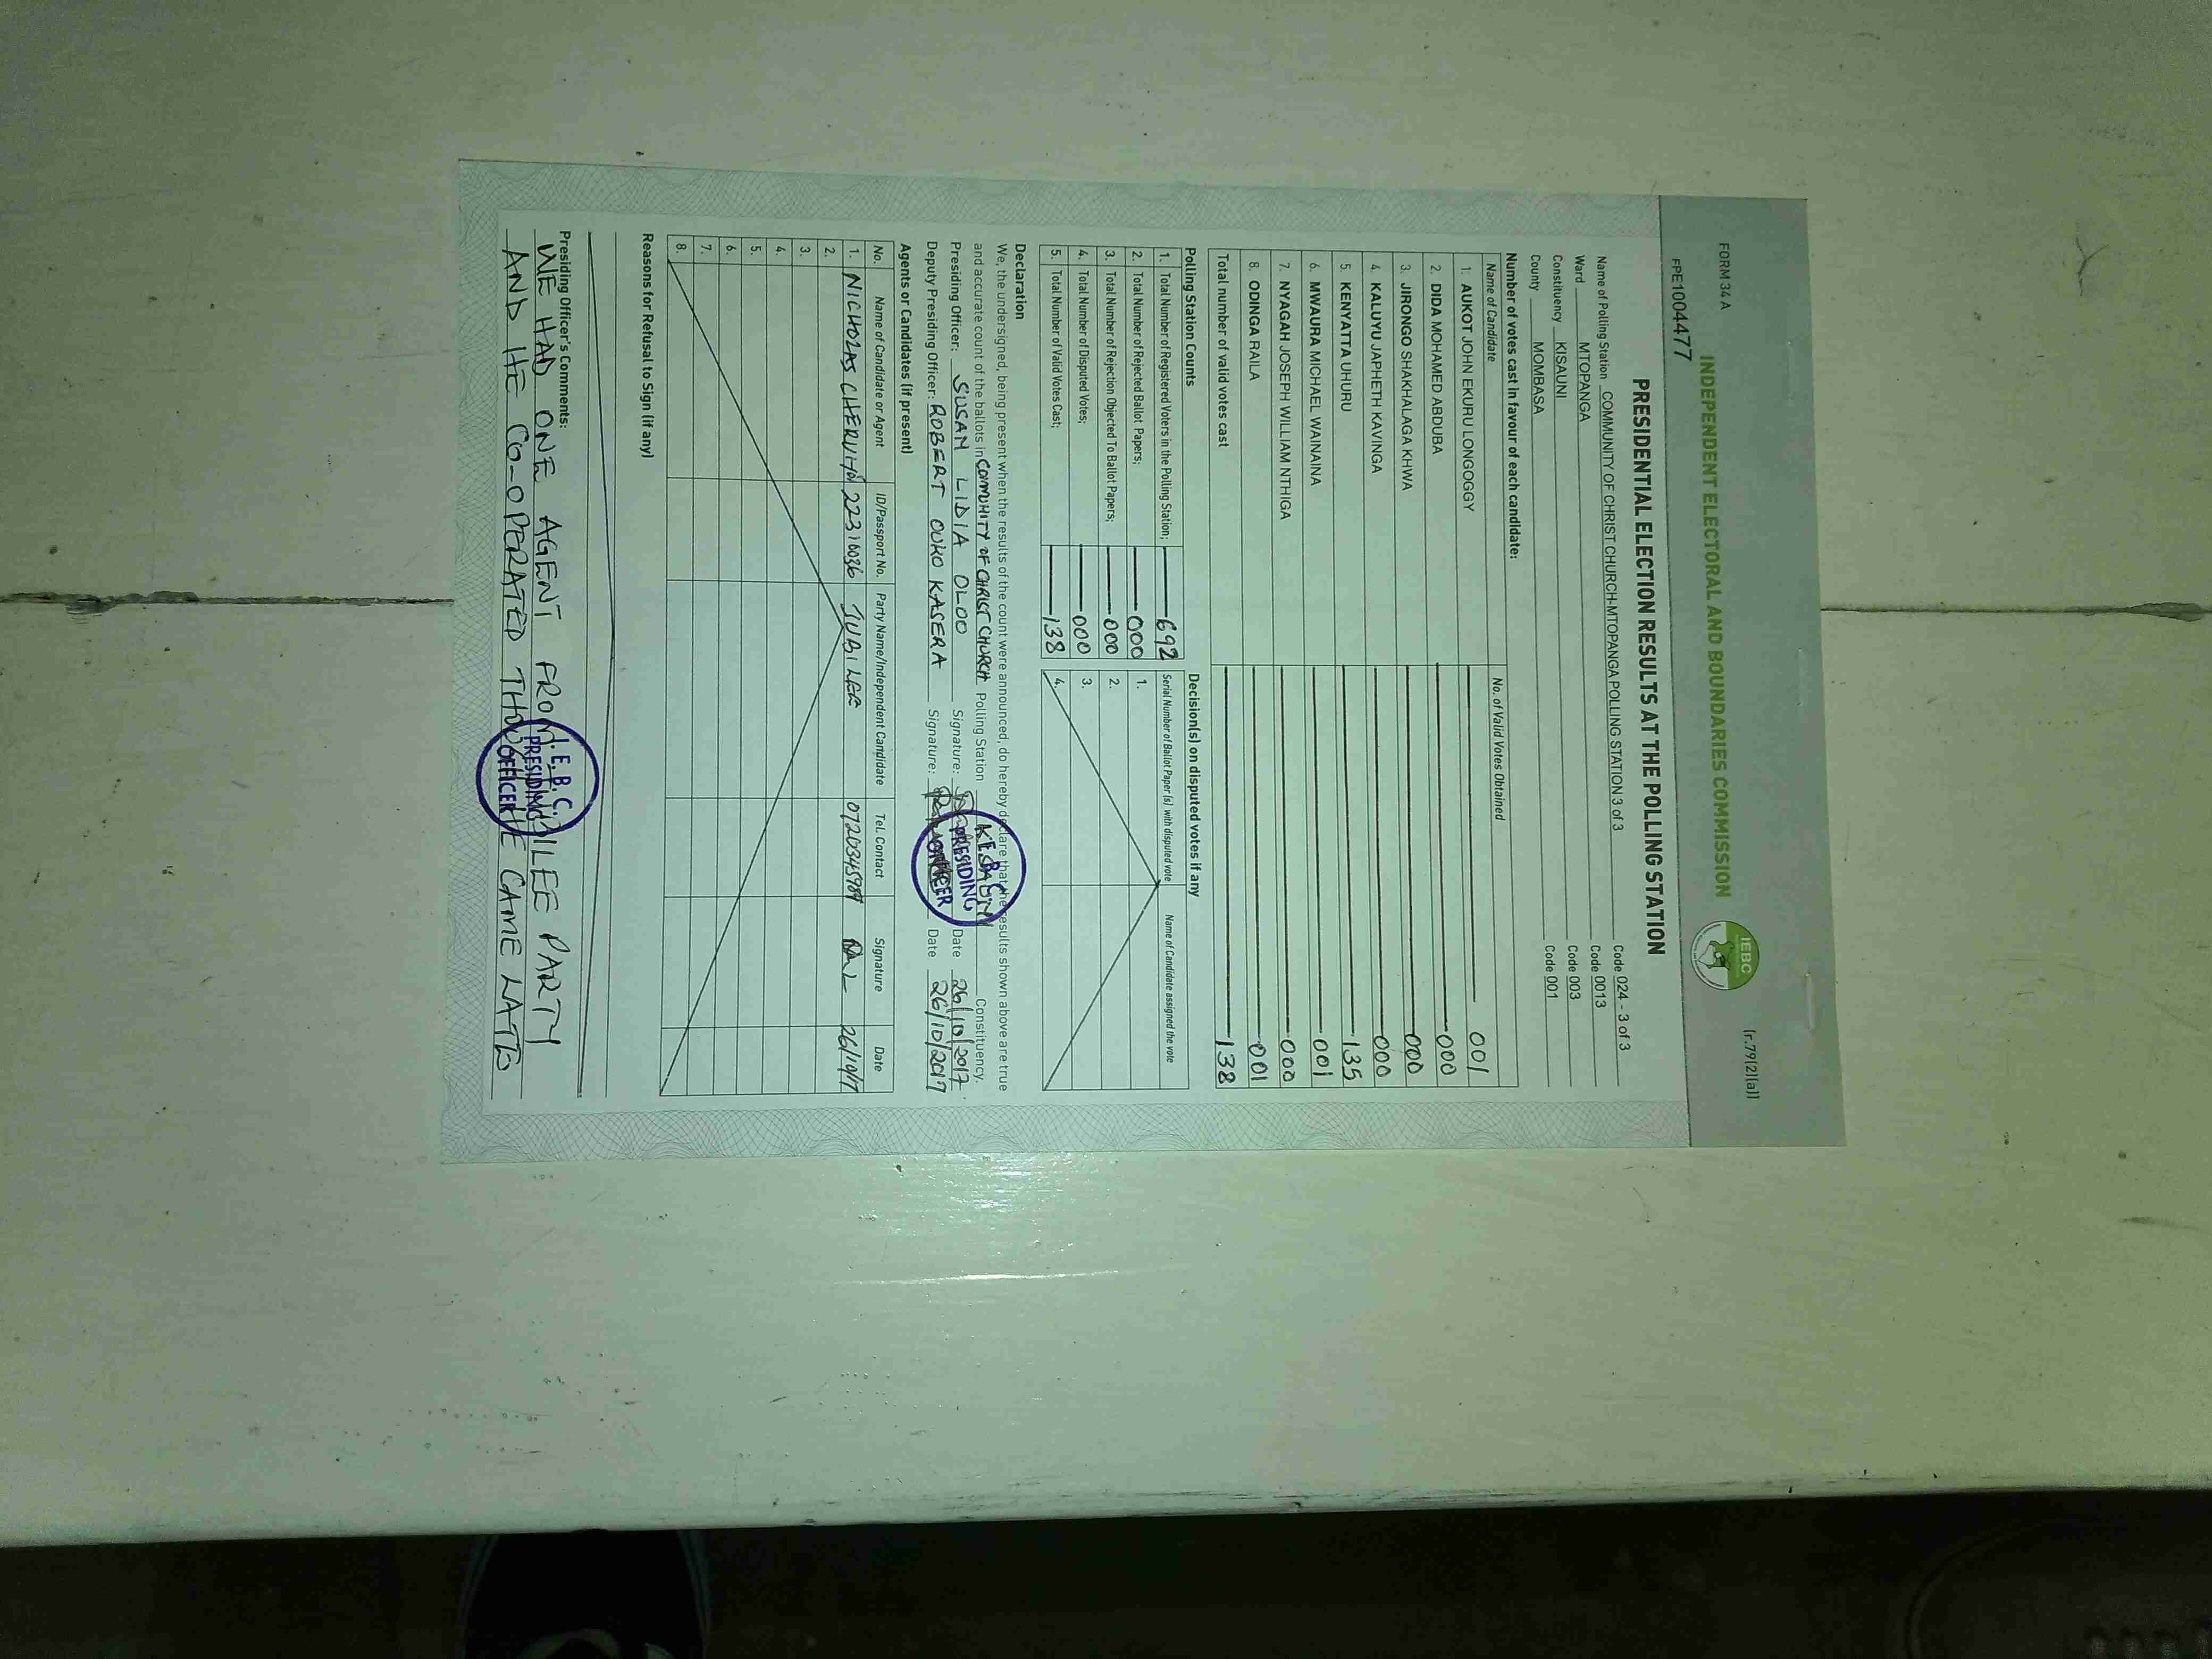 FORM 34 A
(r.79(2)(a))
INDEPENDENT ELECTORAL AND BOUNDARIES COMMISSION
IEBC
FPE1004477
PRESIDENTIAL ELECTION RESULTS AT THE POLLING STATION
Name of Polling Station COMMUNITY OF CHRIST CHURCH-MTOPANGA POLLING STATION 3 of 3 Code 024 - 3 of 3
Ward MTOPANGA Code 0013
Constituency KISAUNI Code 003
County MOMBASA Code 001
Number of votes cast in favour of each candidate:
Name of Candidate No. of Valid Votes Obtained
1. AUKOT JOHN EKURU LONGOGGY 001
2. DIDA MOHAMED ABDUBA 000
3. JIRONGO SHAKHALAGA KHWA 000
4. KALUYU JAPHETH KAVINGA 000
5. KENYATTA UHURU 135
6. MWAURA MICHAEL WAINAINA 001
7. NYAGAH JOSEPH WILLIAM NTHIGA 000
8. ODINGA RAILA 001
Total number of valid votes cast 138
Polling Station Counts
1. Total Number of Registered Voters in the Polling Station; 692
2. Total Number of Rejected Ballot Papers; 000
3. Total Number of Rejection Objected To Ballot Papers; 000
4. Total Number of Disputed Votes; 000
5. Total Number of Valid Votes Cast; 138
Decision(s) on disputed votes if any
Serial Number of Ballot Paper (s) with disputed vote Name of Candidate assigned the vote
1.
2.
3.
4.
Declaration
We, the undersigned, being present when the results of the count were announced, do hereby declare that the results shown above are true
and accurate count of the ballots in COMMUNITY OF CHRIST CHURCH Polling Station KISAUNI Constituency.
Presiding Officer: SUSAN LIDIA OLOO Signature: Date 26/10/2017
Deputy Presiding Officer: ROBERT OUKO KASERA Signature: Date 26/10/2017
I.E.B.C.
PRESIDING
OFFICER
Agents or Candidates (if present)
No. Name of Candidate or Agent ID/Passport No. Party Name/Independent Candidate Tel. Contact Signature Date
1. NICHOLAS 22316036 JUBILEE 26/10/17
2.
3.
4.
5.
6.
7.
8.
Reasons for Refusal to Sign (if any)
Presiding Officer's Comments:
WE HAD ONE AGENT FROM JUBILEE PARTY
AND HE CO-OPERATED THOUGH HE CAME LATE
I.E.B.C.
PRESIDING
OFFICER